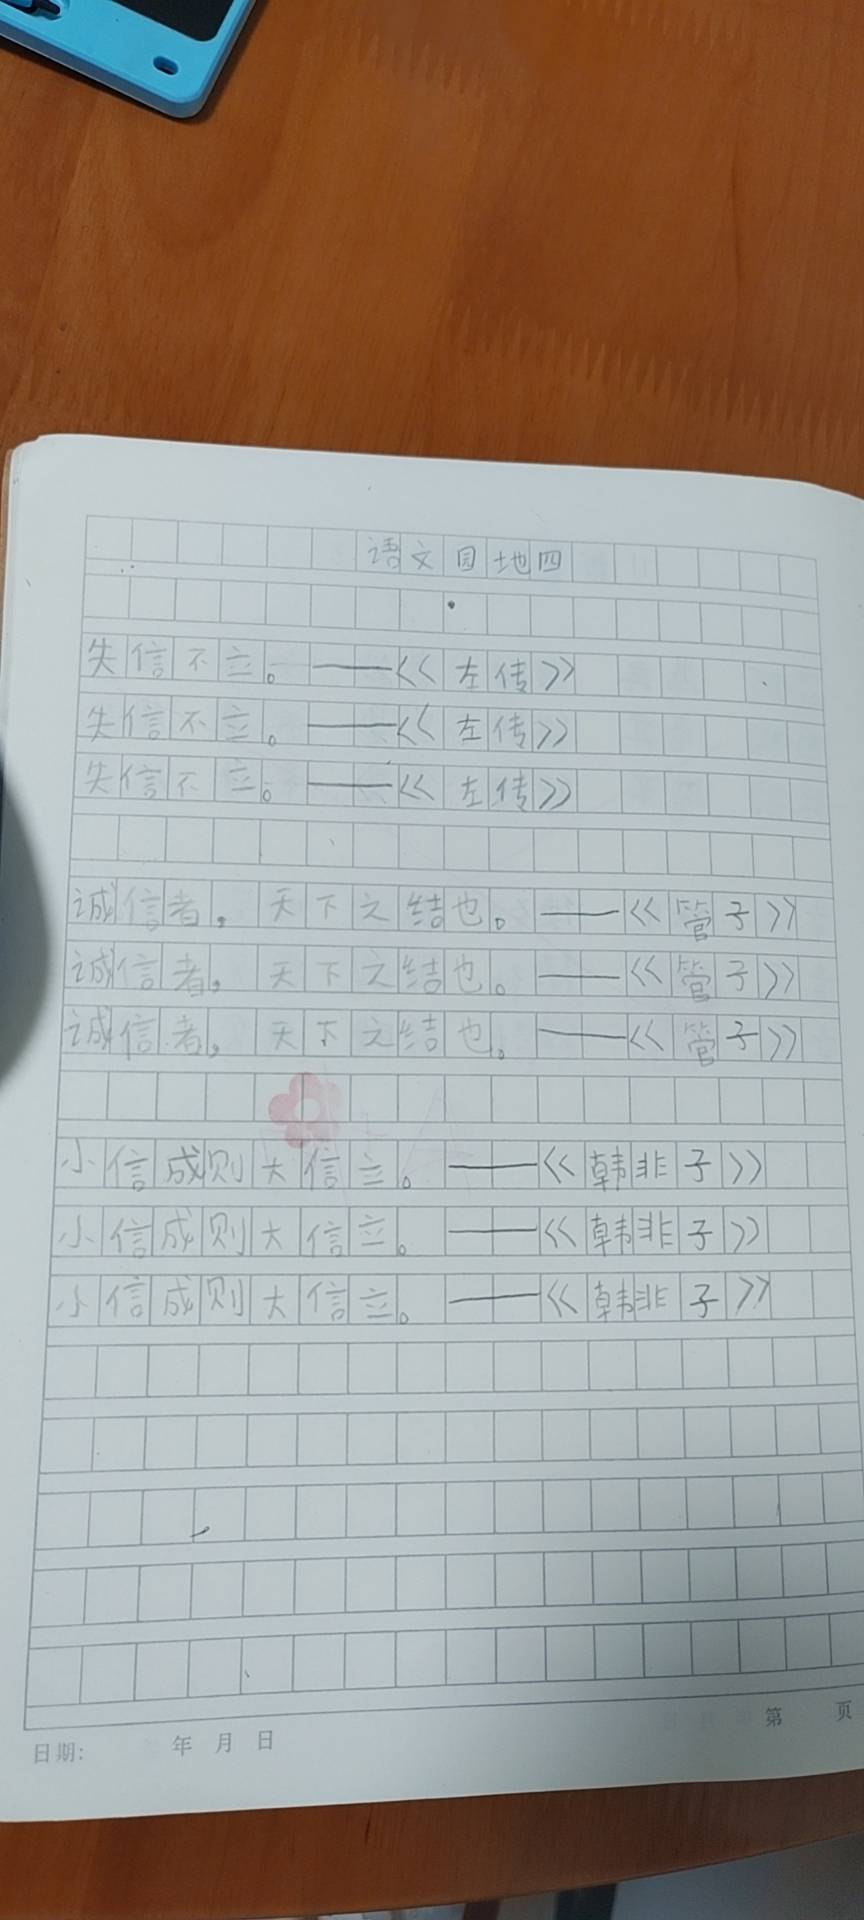 语文园地四
失信不立。——《左传》
失信不立。——《左传》
失信不立。——《左传》
诚信者，天下之结也。——《管子》
诚信者，天下之结也。——《管子》
诚信者，天下之结也。——《管子》
小信成则大信立。——《韩非子》
小信成则大信立。——《韩非子》
小信成则大信立。——《韩非子》
日期: 年 月 日 第 页